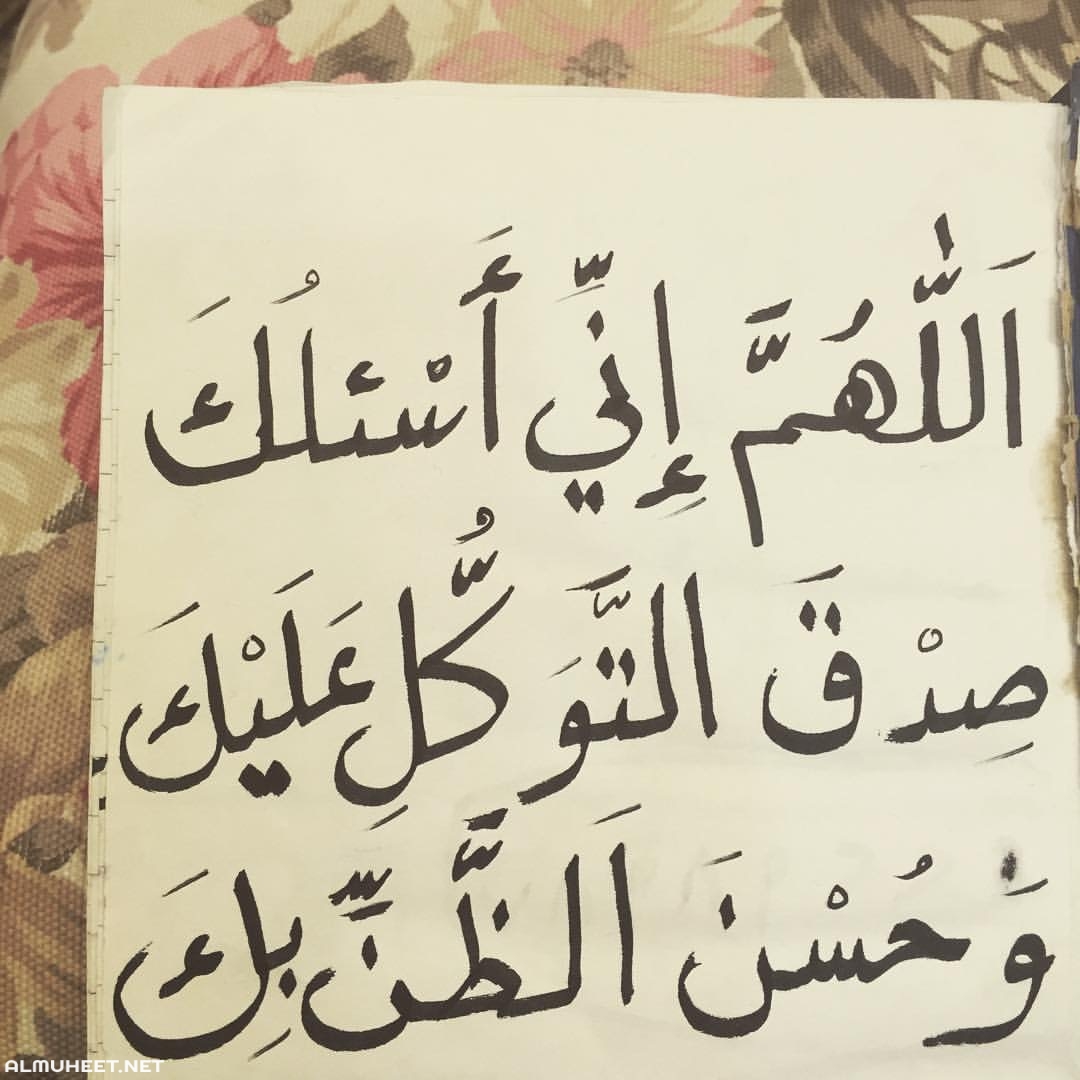 اَللّٰهُمَّ إِنِّي أَسْئَلُكَ
صِدْقَ التَّوَكُّلِ عَلَيْكَ
وَحُسْنَ اَلظَّنِّ بِكَ
ALMUHEET.NET